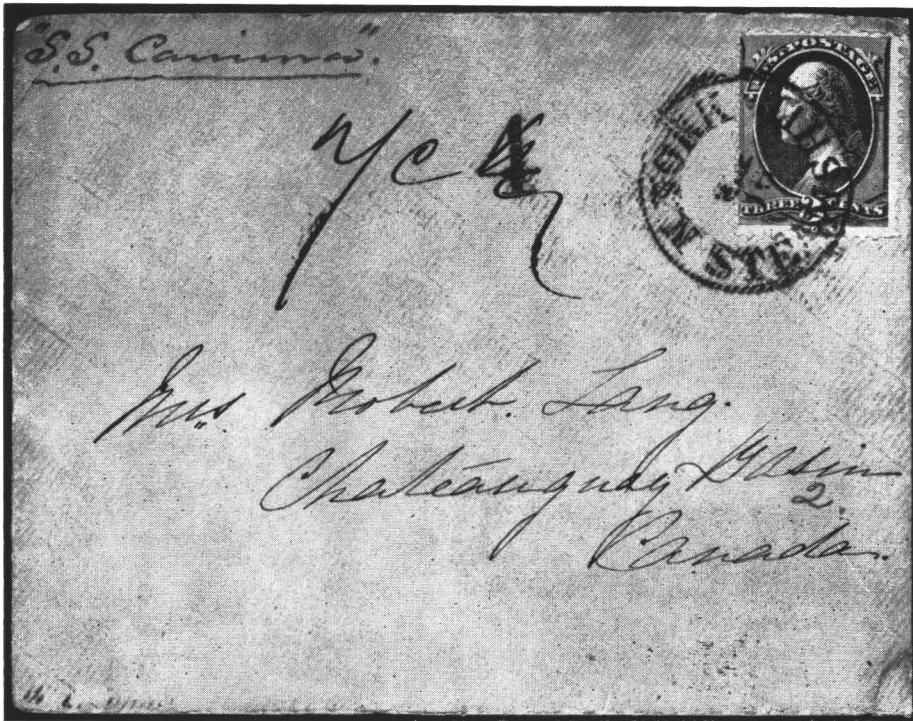 "S.S. Canima".
U.S. POSTAGE
THREE 3 CENTS
N YORK STEAMSHIP
Mrs. Robert. Lang.
Chateauguay Basin
2.
Canada.